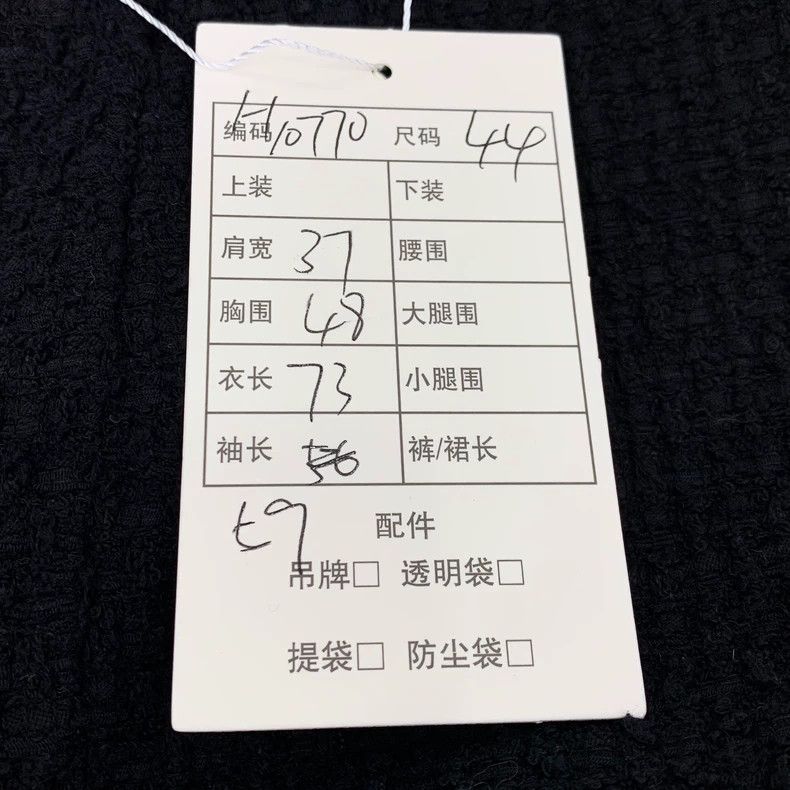 编码 H10770 尺码 44
上装 下装
肩宽 37 腰围
胸围 48 大腿围
衣长 73 小腿围
袖长 56 裤/裙长
59 配件
吊牌□ 透明袋□
提袋□ 防尘袋□